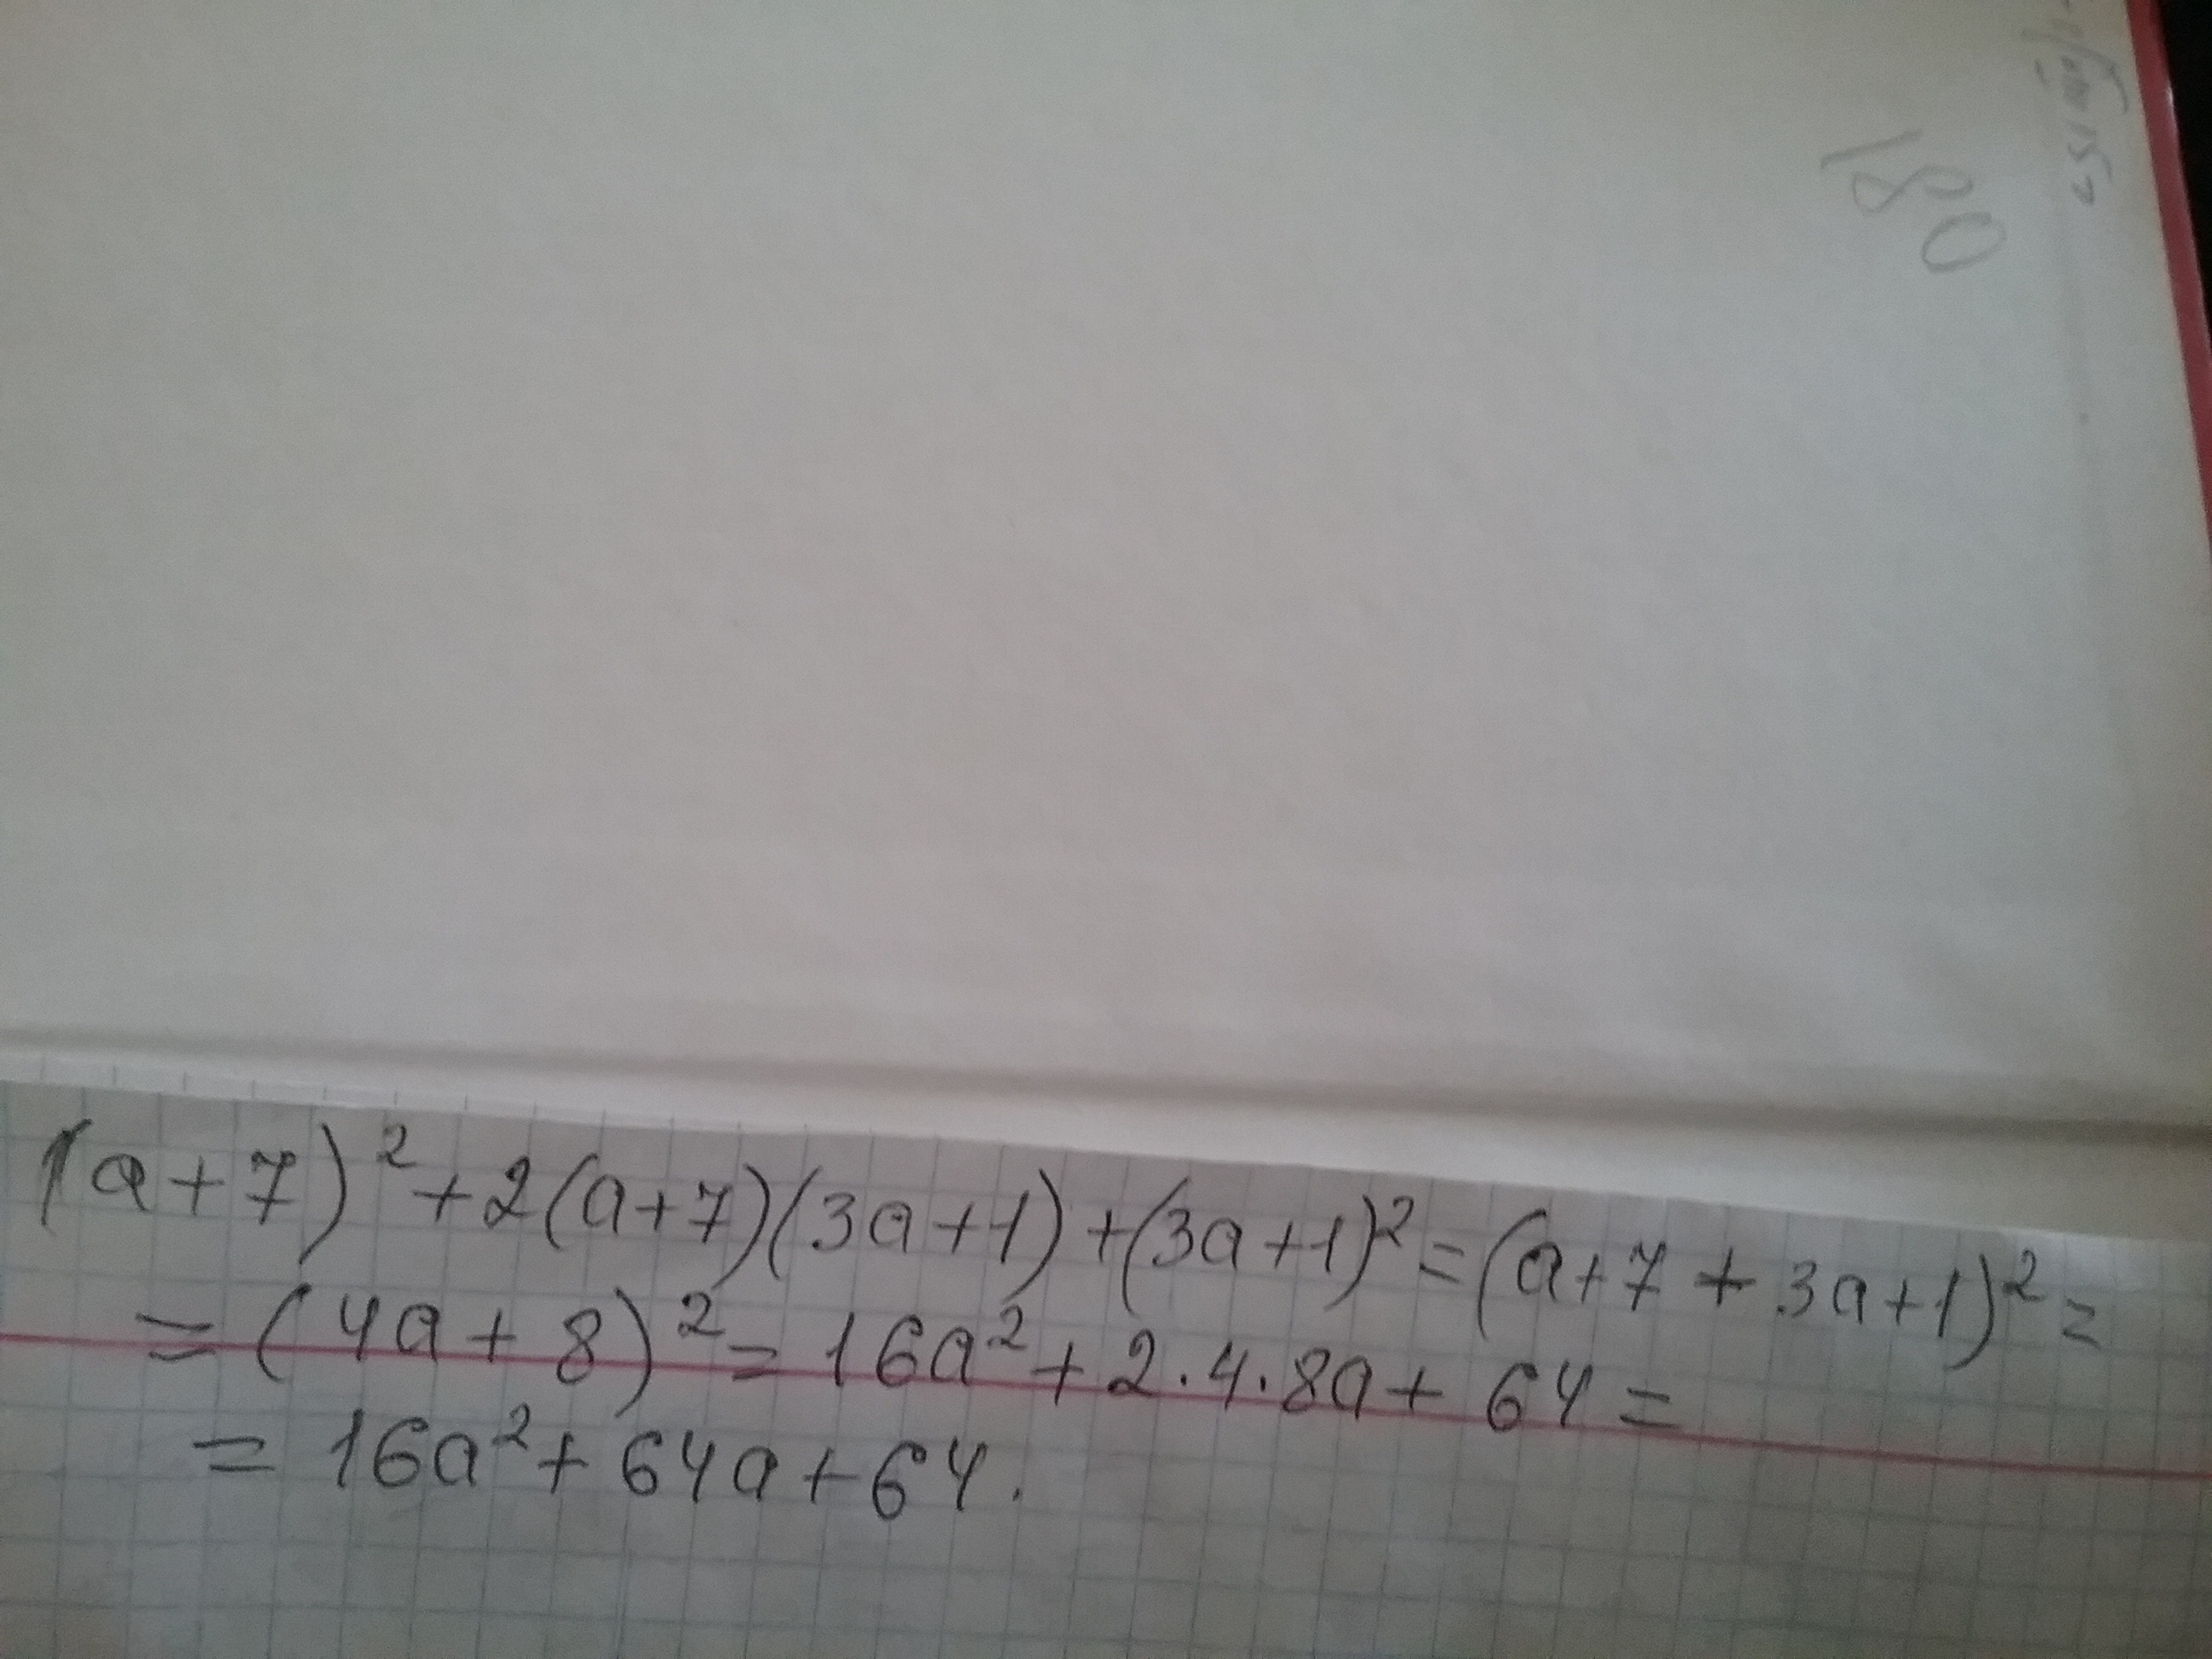 (a+7)²+2(a+7)(3a+1)+(3a+1)²=(a+7+3a+1)²=
=(4a+8)²=16a²+2·4·8a+64=
=16a²+64a+64.